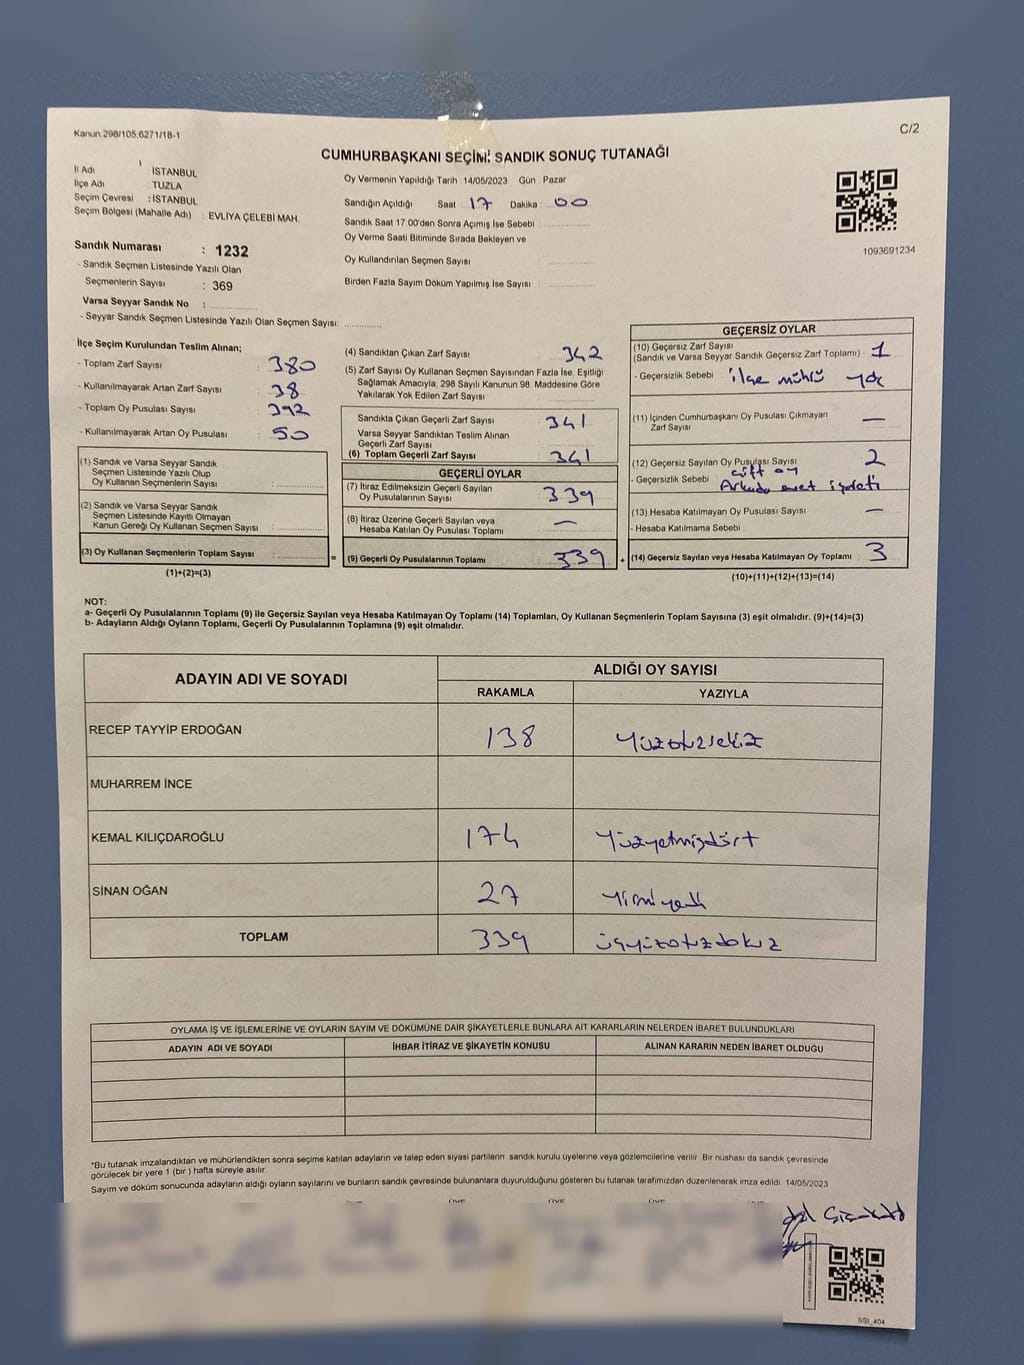 Kanun:298/105,6271/18-1
C/2
CUMHURBAŞKANI SEÇİMİ SANDIK SONUÇ TUTANAĞI
İl Adı : İSTANBUL
İlçe Adı : TUZLA
Seçim Çevresi : İSTANBUL
Seçim Bölgesi (Mahalle Adı) : EVLİYA ÇELEBİ MAH.
Sandık Numarası : 1232
- Sandık Seçmen Listesinde Yazılı Olan
Seçmenlerin Sayısı : 369
Varsa Seyyar Sandık No :
- Seyyar Sandık Seçmen Listesinde Yazılı Olan Seçmen Sayısı:
Oy Vermenin Yapıldığı Tarih :14/05/2023 Gün : Pazar
Sandığın Açıldığı Saat : 17 Dakika : 00
Sandık Saat 17:00'den Sonra Açımış İse Sebebi :
Oy Verme Saati Bitiminde Sırada Bekleyen ve
Oy Kullandırılan Seçmen Sayısı :
Birden Fazla Sayım Döküm Yapılmış İse Sayısı :
1093691234
İlçe Seçim Kurulundan Teslim Alınan;
- Toplam Zarf Sayısı : 380
- Kullanılmayarak Artan Zarf Sayısı : 38
- Toplam Oy Pusulası Sayısı : 392
- Kullanılmayarak Artan Oy Pusulası : 50
(1) Sandık ve Varsa Seyyar Sandık
Seçmen Listesinde Yazılı Olup
Oy Kullanan Seçmenlerin Sayısı :
(2) Sandık ve Varsa Seyyar Sandık
Seçmen Listesinde Kayıtlı Olmayan
Kanun Gereği Oy Kullanan Seçmen Sayısı :
(3) Oy Kullanan Seçmenlerin Toplam Sayısı : =
(1)+(2)=(3)
(4) Sandıktan Çıkan Zarf Sayısı : 342
(5) Zarf Sayısı Oy Kullanan Seçmen Sayısından Fazla İse, Eşitliği
Sağlamak Amacıyla; 298 Sayılı Kanunun 98. Maddesine Göre
Yakılarak Yok Edilen Zarf Sayısı :
Sandıkta Çıkan Geçerli Zarf Sayısı : 341
Varsa Seyyar Sandıktan Teslim Alınan
Geçerli Zarf Sayısı :
(6) Toplam Geçerli Zarf Sayısı : 341
GEÇERLİ OYLAR
(7) İtiraz Edilmeksizin Geçerli Sayılan
Oy Pusulalarının Sayısı : 339
(8) İtiraz Üzerine Geçerli Sayılan veya
Hesaba Katılan Oy Pusulası Toplamı : —
(9) Geçerli Oy Pusulalarının Toplamı : 339 +
GEÇERSİZ OYLAR
(10) Geçersiz Zarf Sayısı
(Sandık ve Varsa Seyyar Sandık Geçersiz Zarf Toplamı) : 1
- Geçersizlik Sebebi : ilçe mührü yok
(11) İçinden Cumhurbaşkanı Oy Pusulası Çıkmayan
Zarf Sayısı : —
(12) Geçersiz Sayılan Oy Pusulası Sayısı : 2
çift oy
- Geçersizlik Sebebi : Arkada evet işareti
(13) Hesaba Katılmayan Oy Pusulası Sayısı : —
- Hesaba Katılmama Sebebi :
(14) Geçersiz Sayılan veya Hesaba Katılmayan Oy Toplamı : 3
(10)+(11)+(12)+(13)=(14)
NOT:
a- Geçerli Oy Pusulalarının Toplamı (9) ile Geçersiz Sayılan veya Hesaba Katılmayan Oy Toplamı (14) Toplamları, Oy Kullanan Seçmenlerin Toplam Sayısına (3) eşit olmalıdır. (9)+(14)=(3)
b- Adayların Aldığı Oyların Toplamı, Geçerli Oy Pusulalarının Toplamına (9) eşit olmalıdır.
ADAYIN ADI VE SOYADI
ALDIĞI OY SAYISI
RAKAMLA YAZIYLA
RECEP TAYYİP ERDOĞAN 138 Yüzotuzsekiz
MUHARREM İNCE
KEMAL KILIÇDAROĞLU 174 Yüzyetmişdört
SİNAN OĞAN 27 Yirmiyedi
TOPLAM 339 üçyüzotuzdokuz
OYLAMA İŞ VE İŞLEMLERİNE VE OYLARIN SAYIM VE DÖKÜMÜNE DAİR ŞİKAYETLERLE BUNLARA AİT KARARLARIN NELERDEN İBARET BULUNDUKLARI
ADAYIN ADI VE SOYADI İHBAR İTİRAZ VE ŞİKAYETİN KONUSU ALINAN KARARIN NEDEN İBARET OLDUĞU
*Bu tutanak imzalandıktan ve mühürlendikten sonra seçime katılan adayların ve talep eden siyasi partilerin sandık kurulu üyelerine veya gözlemcilerine verilir. Bir nüshası da sandık çevresinde
görülecek bir yere 1 (bir ) hafta süreyle asılır.
Sayım ve döküm sonucunda adayların aldığı oyların sayılarını ve bunların sandık çevresinde bulunanlara duyurulduğunu gösteren bu tutanak tarafımızdan düzenlenerek imza edildi. 14/05/2023
SSI_404